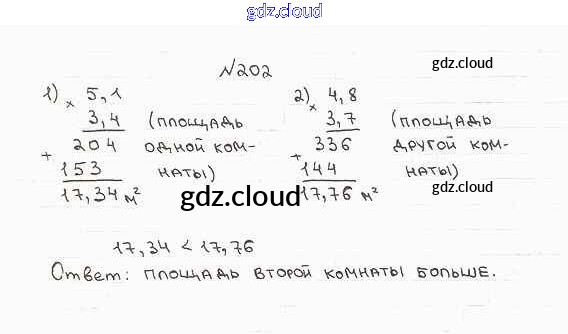 gdz.cloud
№202
gdz.cloud
1) × 5,1
3,4
204
+
153
17,34 м²
(площадь
одной ком-
наты)
2) × 4,8
3,7
336
+
144
17,76 м²
(площадь
другой ком-
наты)
gdz.cloud
gdz.cloud
17,34 < 17,76
Ответ: площадь второй комнаты больше.